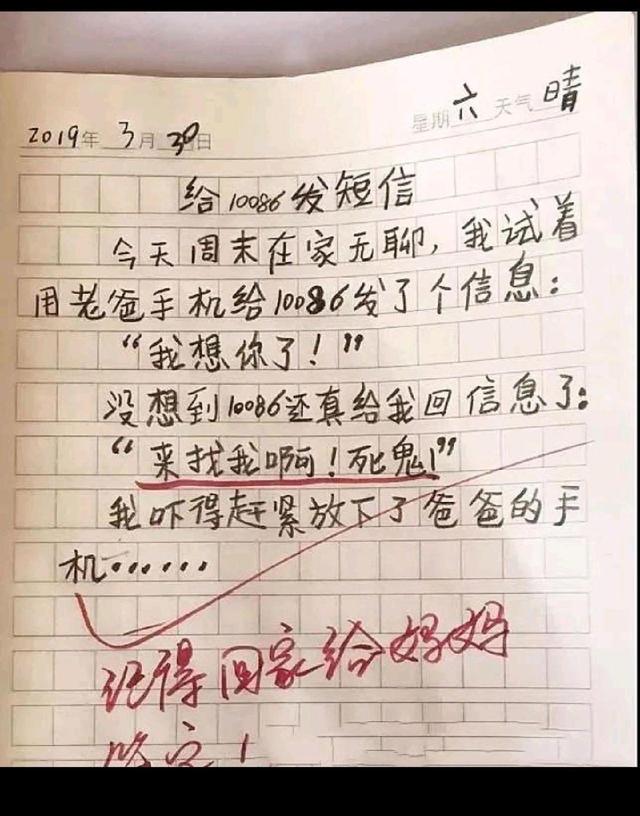 2019年 3月 30日 星期 六 天气 晴
给10086发短信
今天周末在家无聊，我试着
用老爸手机给10086发了个信息：
“我想你了！”
没想到10086还真给我回信息了：
“来找我啊！死鬼！”
我吓得赶紧放下了爸爸的手
机……
记得回家给妈妈